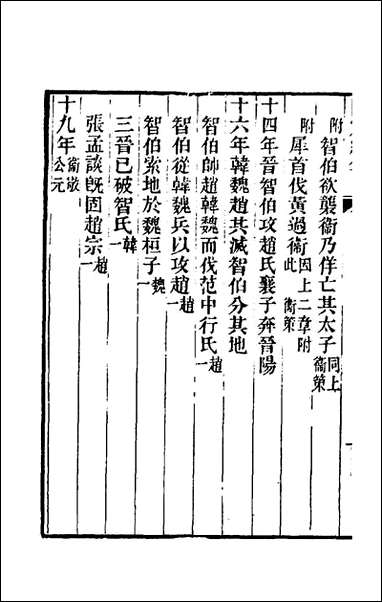 附智伯欲襲衛乃佯亡其太子同上衞策
附犀首伐黃過衞因上二章附此衞策
十四年晉智伯攻趙氏襄子奔晉陽
十六年韓魏趙共滅智伯分其地
智伯帥趙韓魏而伐范中行氏趙一
智伯從韓魏兵以攻趙趙一
智伯索地於魏桓子魏一
三晉已破智氏韓一
張孟談旣固趙宗趙一
十九年衞敬公元